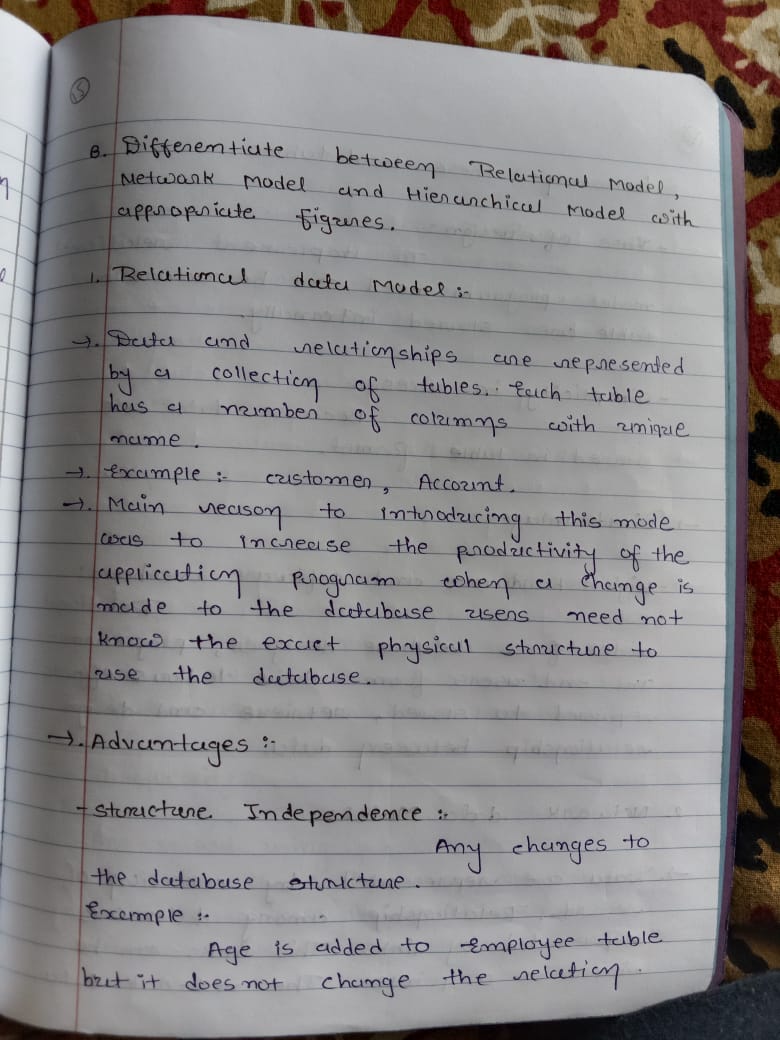 15
8. Differentiate between Relational Model,
Network Model and Hierarchical Model with
appropriate figures.
1. Relational data Model :-
→. Data and relationships are represented
by a collection of tables. Each table
has a number of columns with unique
name.
→. Example :- customer, Account.
→. Main reason to introducing this mode
was to increase the productivity of the
application program when a change is
made to the database users need not
know the exact physical structure to
use the database.
→. Advantages :-
- Structure Independence :-
Any changes to
the database structure.
Example :-
Age is added to Employee table
but it does not change the relation.